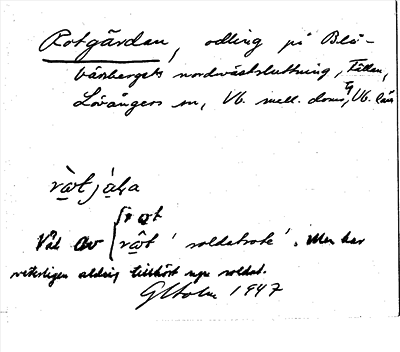 Rotgärdan, odling på Blå-
bärsbergets nordvästsluttning, Fällan,
Lövångers sn, Vb. mell. doms, Vb. län
ròtjäḷa
rot
Väl av rôt 'soldatrote'. Men har
veterligen aldrig tillhört ngn soldat.
G Holm 1947